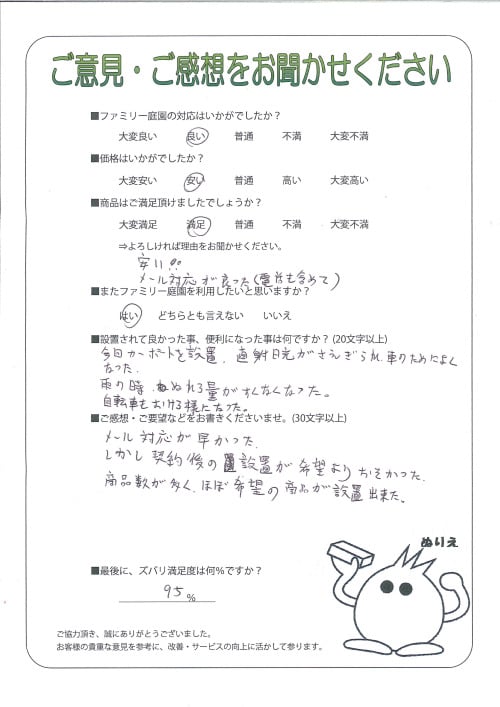 ご意見・ご感想をお聞かせください
■ファミリー庭園の対応はいかがでしたか？
大変良い 良い 普通 不満 大変不満
■価格はいかがでしたか？
大変安い 安い 普通 高い 大変高い
■商品はご満足頂けましたでしょうか？
大変満足 満足 普通 不満 大変不満
⇒よろしければ理由をお聞かせください。
安い!!
メール対応が良かった(電話も含めて)
■またファミリー庭園を利用したいと思いますか？
はい どちらとも言えない いいえ
■設置されて良かった事、便利になった事は何ですか？(20文字以上)
今回カーポートを設置、直射日光がさえぎられ、車のためによく
なった。
雨の時、ぬれる量がすくなくなった。
自転車もおける様になった。
■ご感想・ご要望などをお書きくださいませ。(30文字以上)
メール対応が早かった、
しかし契約後の設置が希望よりおそかった、
商品数が多く、ほぼ希望の商品が設置出来た。
ぬりえ
■最後に、ズバリ満足度は何％ですか？
95%
ご協力頂き、誠にありがとうございました。
お客様の貴重な意見を参考に、改善・サービスの向上に活かして参ります。